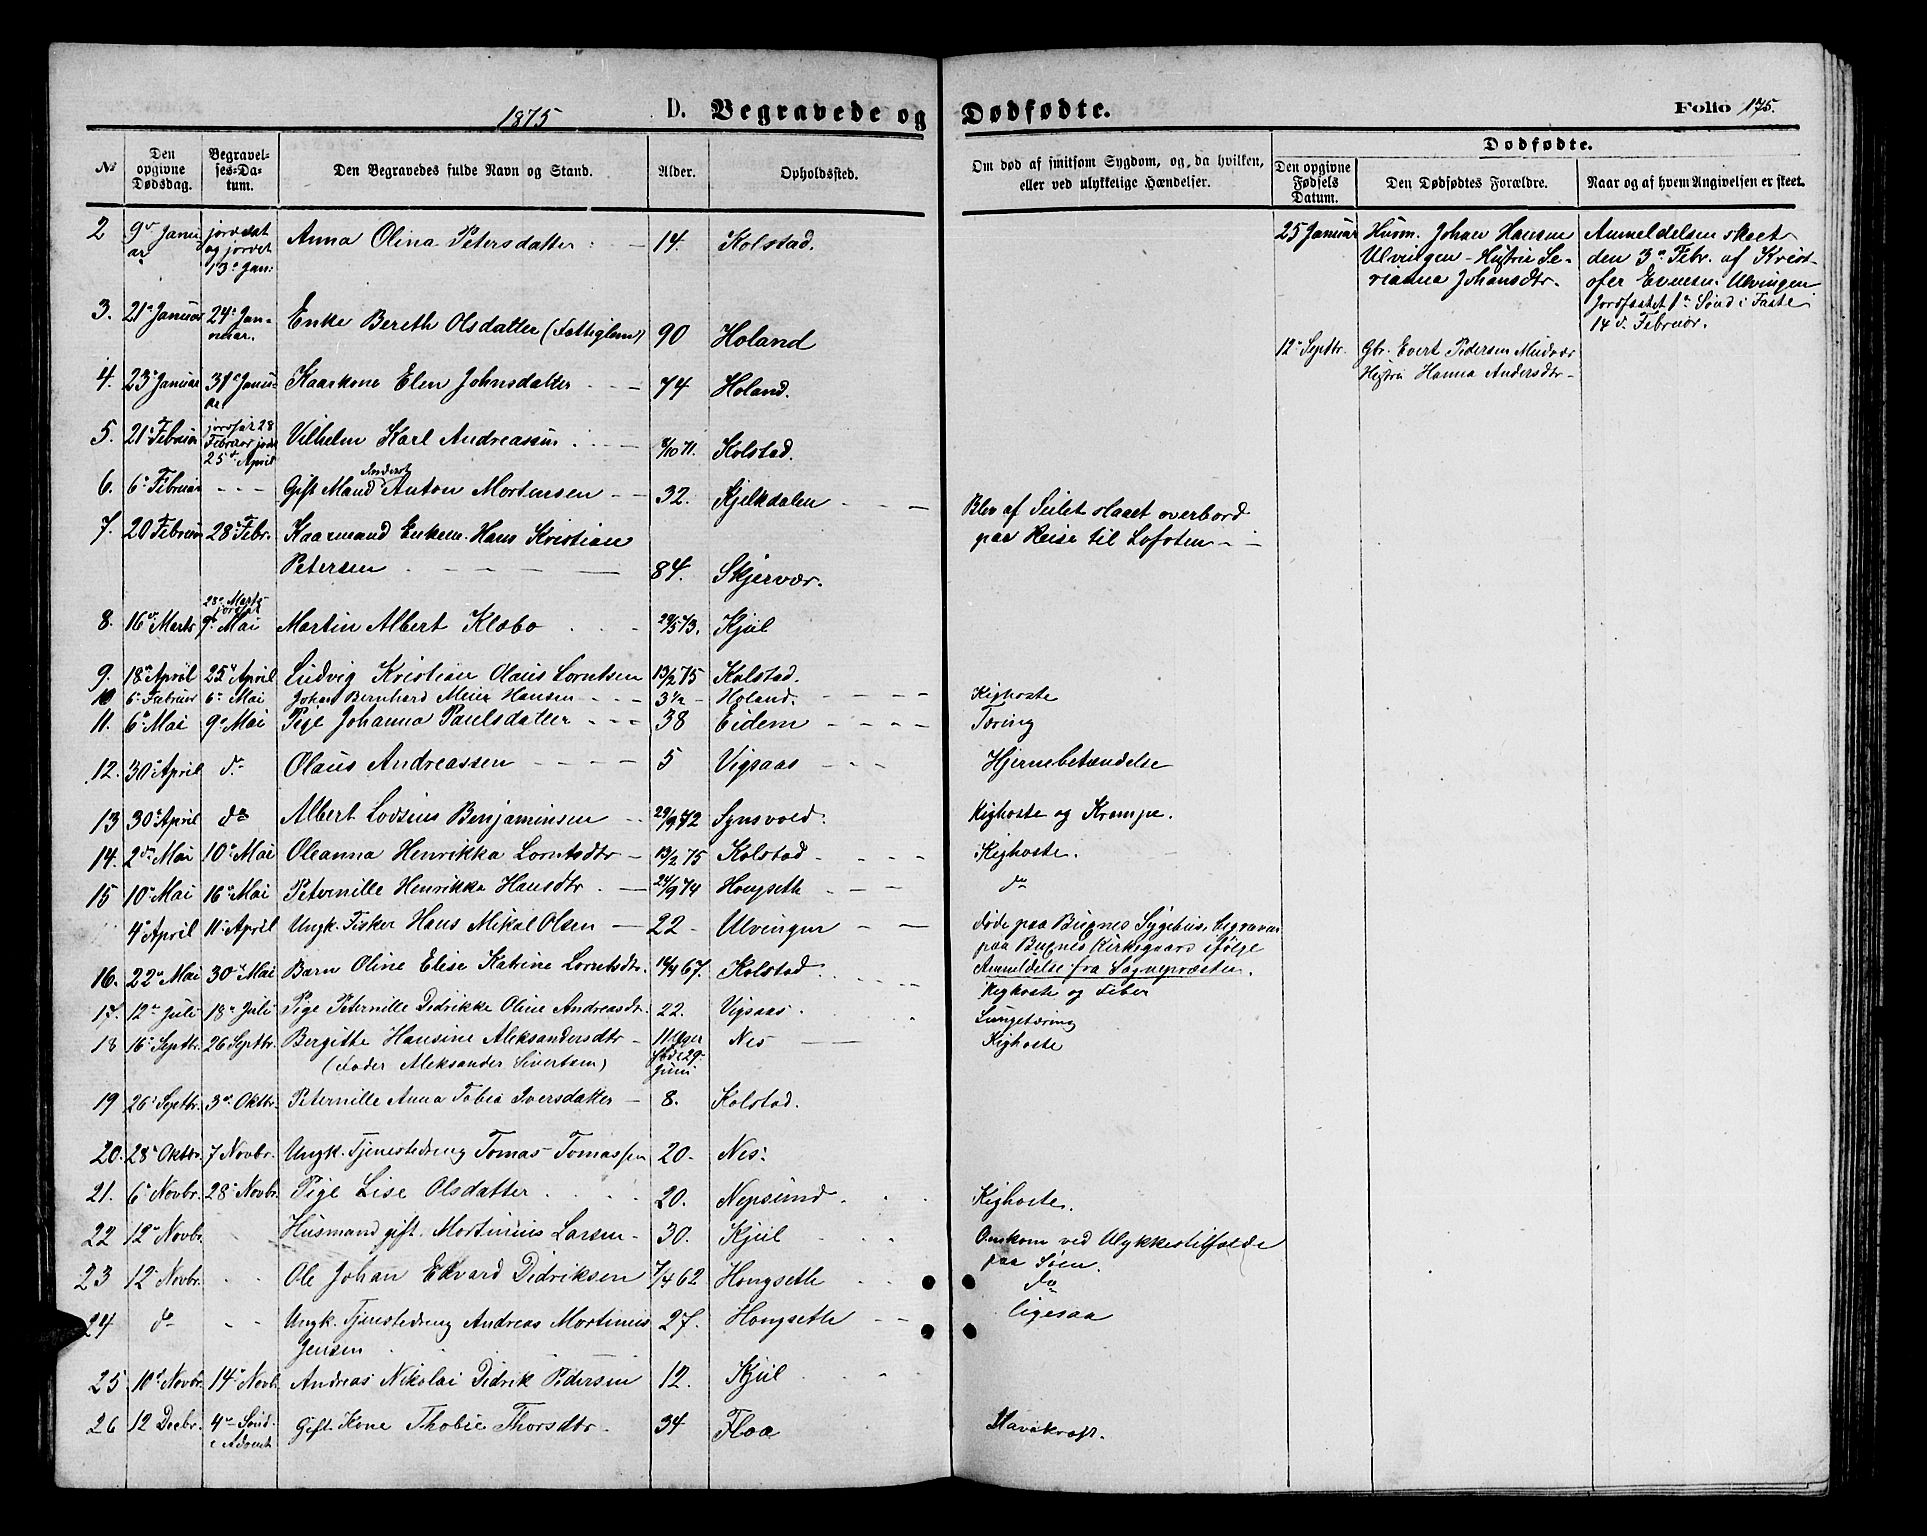 1875
D. Begravede og Dødfødte.
Folio 175.
Dødfødte.
№ Den opgivne Dødsdag. Begravelses-Datum. Den Begravedes fulde Navn og Stand. Alder. Opholdsted. Om død af smitsom Sygdom, og, da hvilken, eller ved ulykkelige Hændelser. Den opgivne Fødsels Datum. Den Dødfødtes Forældre. Naar og af hvem Angivelsen er skeet.
2 9de Januar jordet 13de Jan: Anna Olina Petersdatter 14. Kolstad.
3. 21de Januar 24de Januar. Enke Bereth Olsdatter (Fattiglem) 90 Holand
4. 23de Januar 31de Januar Kaarkone Elen Johnsdatter 74 Holand.
5. 21de Februar 28 Februar 25de April Vilhelm Karl Andreassen 71. Kolstad.
6. 6te Februar - - - Gift Mand Anton Mortensen 32. Kjelkdalen Blev af Seilet slaaet overbord
paa Reise til Lofoten
7. 20 Februar 28de Febr. Kaarmand Enkem. Hans Kristian
Petersen 84. Skjervær.
8. 16de Marts 28de Marts jordfæstet 9de Mai Martin Albert Klæbo 29/5 73. Kjul
9. 18de April 25de April Ludvig Kristian Olaus Lorntsen 13/2 75 Kolstad.
10 6te Februar 6te Mai Johan Bernhard Meier Hansen 3 1/2 Holand. Kighoste
11. 6te Mai 9de Mai Pige Johanna Paulsdatter 38 Eidem Tæring
12. 30te April do Olaus Andreassen 5 Vigsaas Hjernebetændelse
13 30te April do Albert Lodzius Benjaminsen 29/9 72 Synsvold. Kighoste og Krampe.
14. 2den Mai 10de Mai Oleanna Henrikka Lorntsdtr 13/2 75 Kolstad Kighoste.
15 10de Mai 16de Mai Peternille Henrikka Hansdtr. 24/9 74 Hongseth do
4de April 11te April Ungk. Fisker Hans Mikal Olsen 22 Ulvingen Døde paa Bugnes Sygehus, begraven
paa Bugnes Kirkegaard ifølge
Anmeldelse fra Sognepræsten.
16. 22de Mai 30te Mai Barn Oline Elise Katrine Lorntsdtr. 14/4 67. Kolstad. Kighoste og Feber
17. 12te Juli 18de Juli Pige Peternille Didrikke Oline Andreasdtr. 22. Vigsaas. Lungetæring
18 16de Septbr. 26 Septbr. Bergitte Hansine Aleksandersdtr 11 Uger Nes Kighoste
(Fader Aleksander Sivertsen) født 29. Juni
19 26de Septbr. 3de Oktbr. Peternille Anna Tobia Iversdatter 8. Kolstad.
20. 28de Oktbr. 7 Novbr. Ungk. Tjenestedreng Tomas Tomassen 20. Nes.
21. 6te Novbr. 28de Novbr. Pige Lise Olsdatter 20. Nepsund. Kighoste.
22 12te Novbr. Husmand gift. Mortinius Larsen 30. Kjul Omkom ved Ulykkestilfælde
paa Søen.
23 12te Novbr. Ole Johan Edvard Didriksen 7/4 62 Hongseth do
24 do Ungk. Tjenestedreng Andreas Mortinus
Jensen 27. Hongseth ligesaa
25 10de Novbr. 14de Novb. Andreas Nikolai Didrik Pedersen 12. Kjul
26 12 Decbr. 4de Sønd. i Advent Gift Kone Thobie Thorsdtr. 34 Floa Mavekræft.
25 Januar Husm. Johan Hansen
Ulvingen - Hustru Serianna Johansdtr.
Anmeldelsen skeet
den 3de Febr. af Kristofer Evensen Ulvingen
Jordfæstet 1ste Sønd i Faste
14de Februar.
12te Septbr. Gbr. Evert Pedersen Mudvær
Hustru Hanna Andersdtr